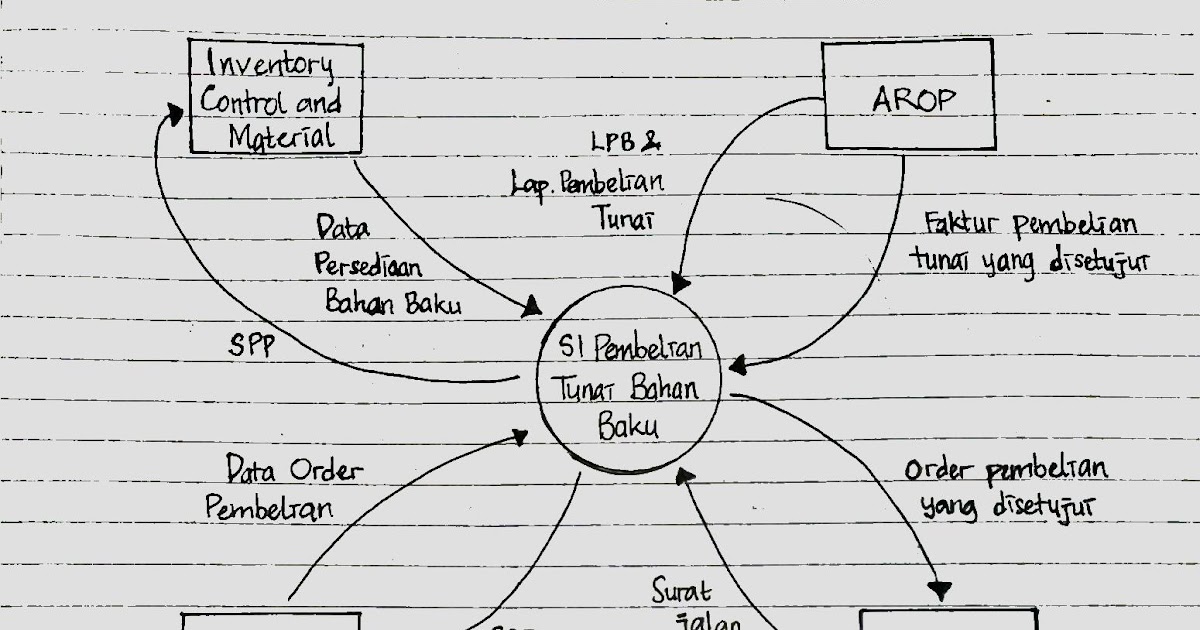 Inventory
Control and
Material
AROP
LPB &
Lap. Pembelian
Tunai
Data
Persediaan
Bahan Baku
Faktur pembelian
tunai yang disetujui
SPP
SI Pembelian
Tunai Bahan
Baku
Data Order
Pembelian
Order pembelian
yang disetujui
Surat
jalan